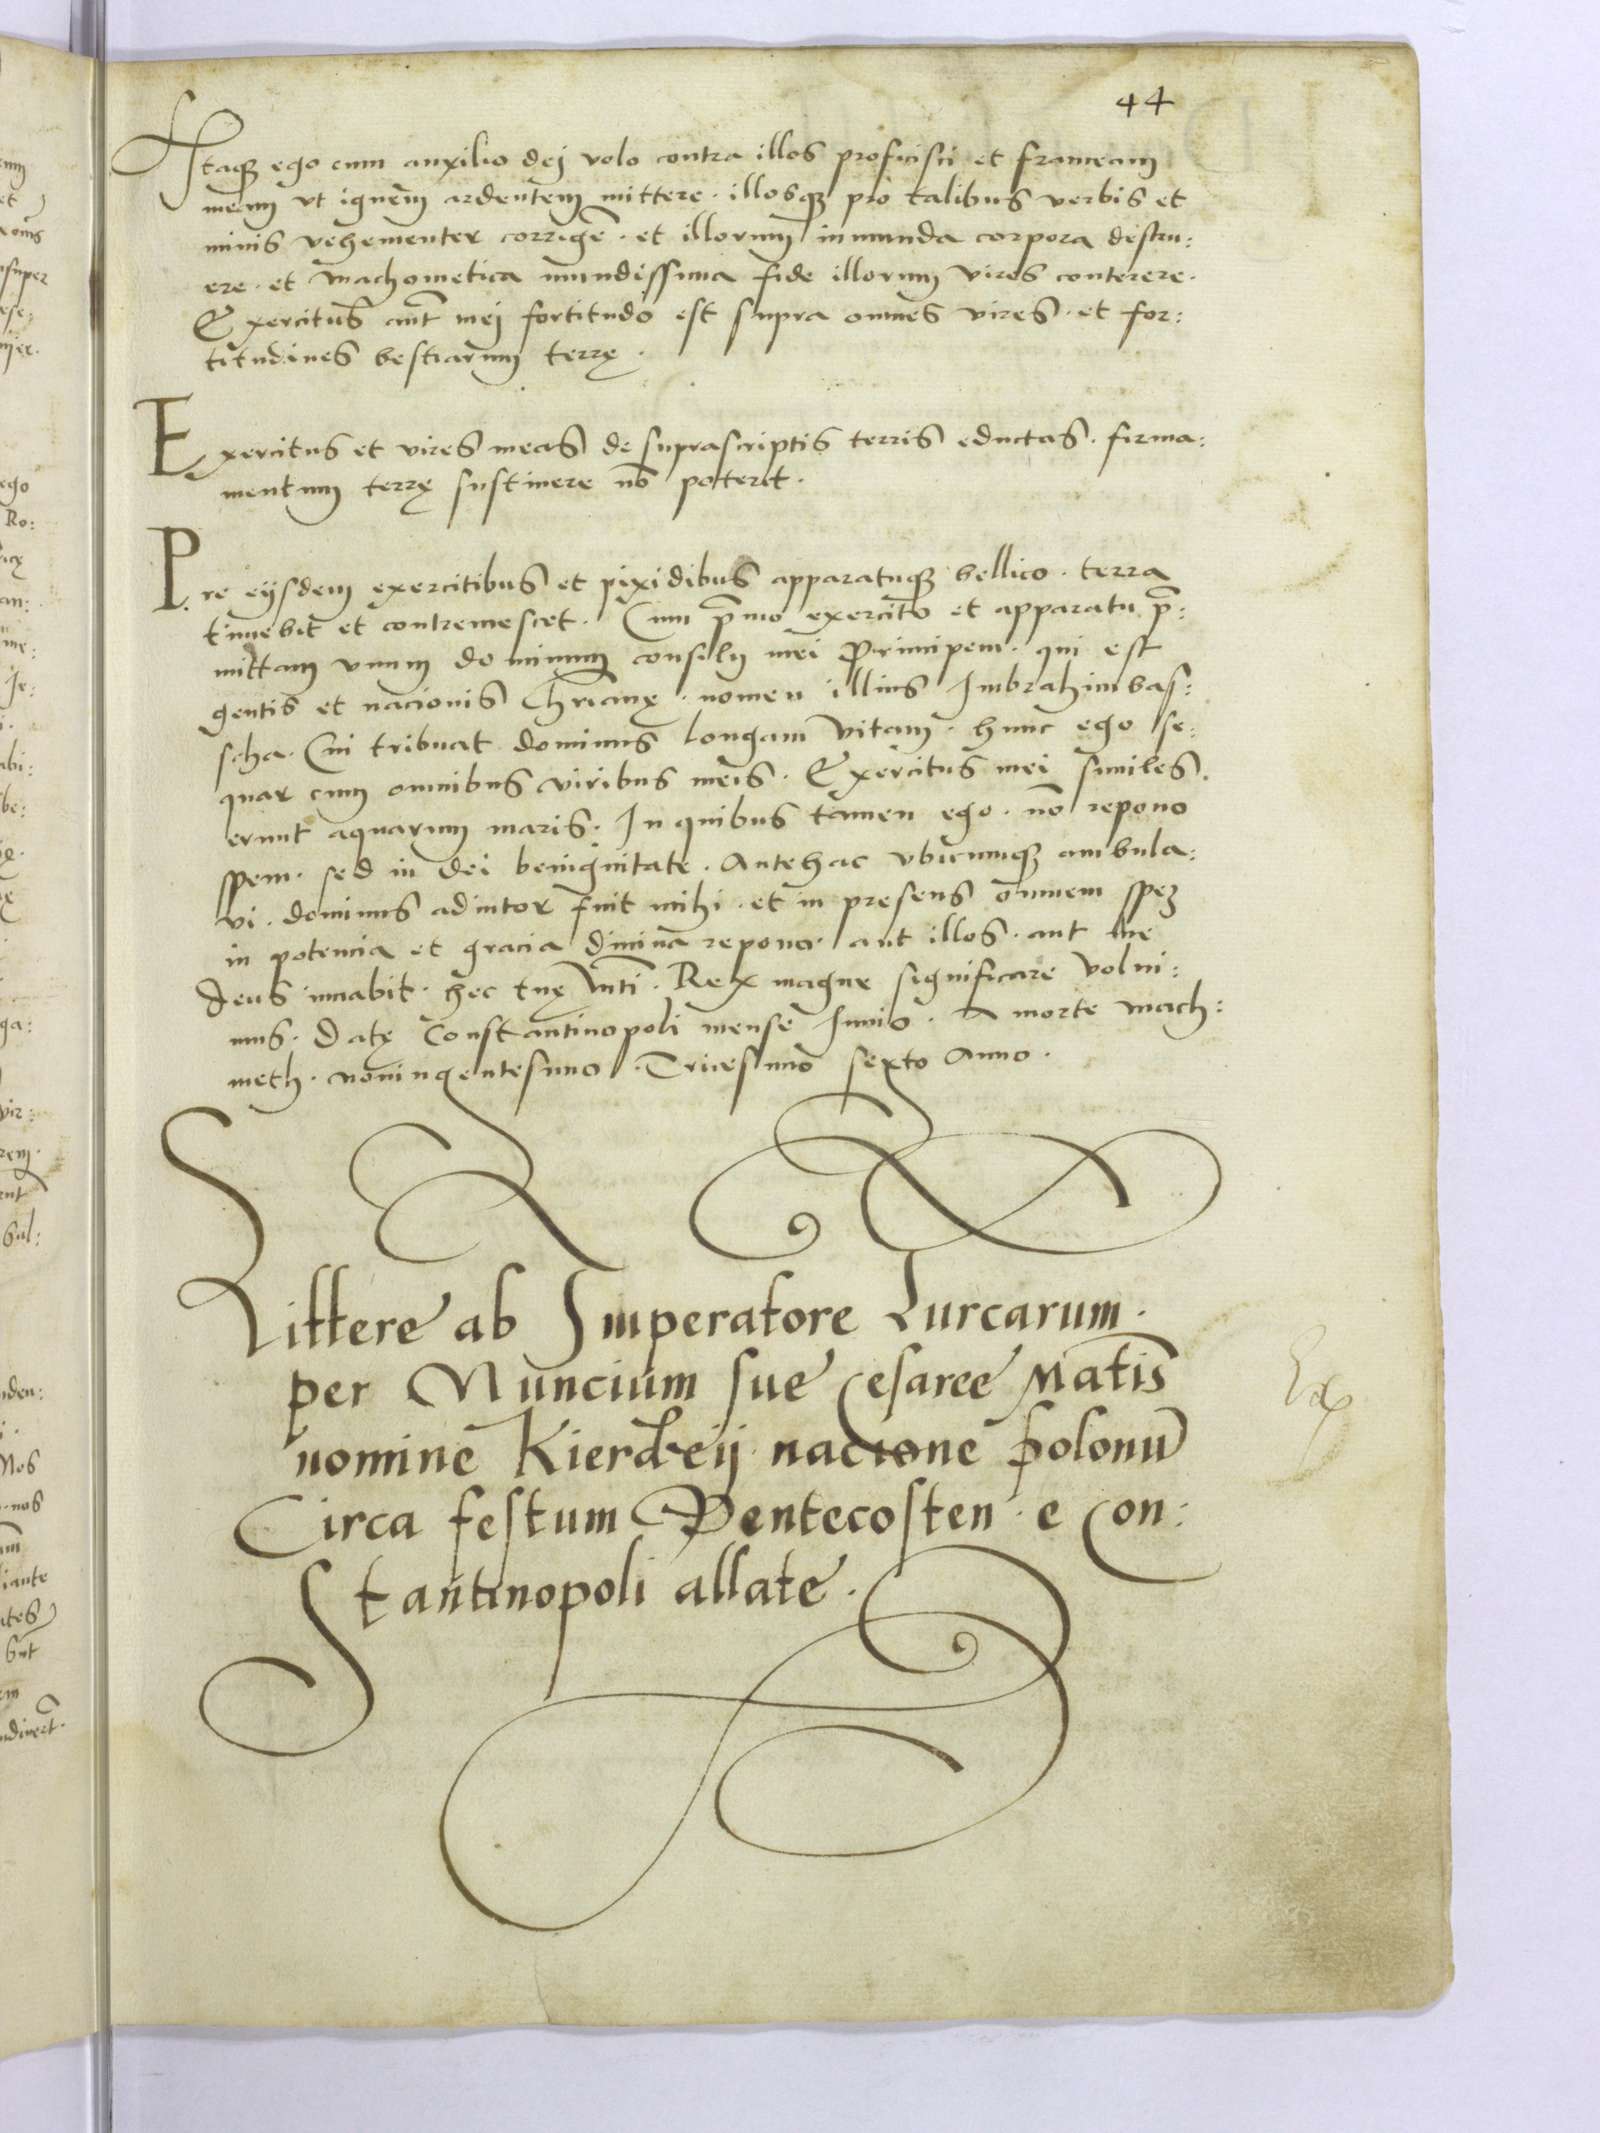 44
Itaq₃ ego cum auxilio dej volo contra illos proficisci et frameam
meam vt ignem ardentem mittere · illosq₃ pro talibus verbis et
minis vehementer corrigē · et illorum inmunda corpora destru:
ere · et machometica mundissima fide illorum vires conterere ·
Exercitus aūt mej fortitudo est supra omnes vires · et for:
titudines bestiarum terrę ·
Exercitus et vires meas de suprascriptis terris eductas · firma:
mentum terrę sustinere nō poterit ·
Pre eijsdem exercitibus et pixidibus apparatuq₃ bellico · terra
timebit et contremescet · Cum p̄mo exercito et apparatu p̄:
mittam vnum dominum consilij mei Principem · qui est
gentis et nacionis Chrianę · nomen illius Imbrahimbas:
scha · Cui tribuat dominus longam vitam · hunc ego se:
quar cum omnibus viribus meis · Exercitus mei similes
erunt aquarum maris · In quibus tamen ego · nō repono
spem · sed in dei benignitate · Antehac vbicumq₃ ambula:
vi · dominus adiutor fuit mihi · et in presens omnem spez
in potencia et gracia diuina repono · aut illos · aut me
deus iuuabit · hec tuę Mti · Rex magne significare volui:
mus · Datę Constantinopoli mense Iunio · A morte mach:
meth · noningentesimo · Tricesimo sexto Anno ·
Littere ab Imperatore Turcarum ·
per Nuncium sue Cesaree Matis
nomine Kierdeij · nacione polonū
Circa festum Pentecosten · e Con:
stantinopoli allate ·